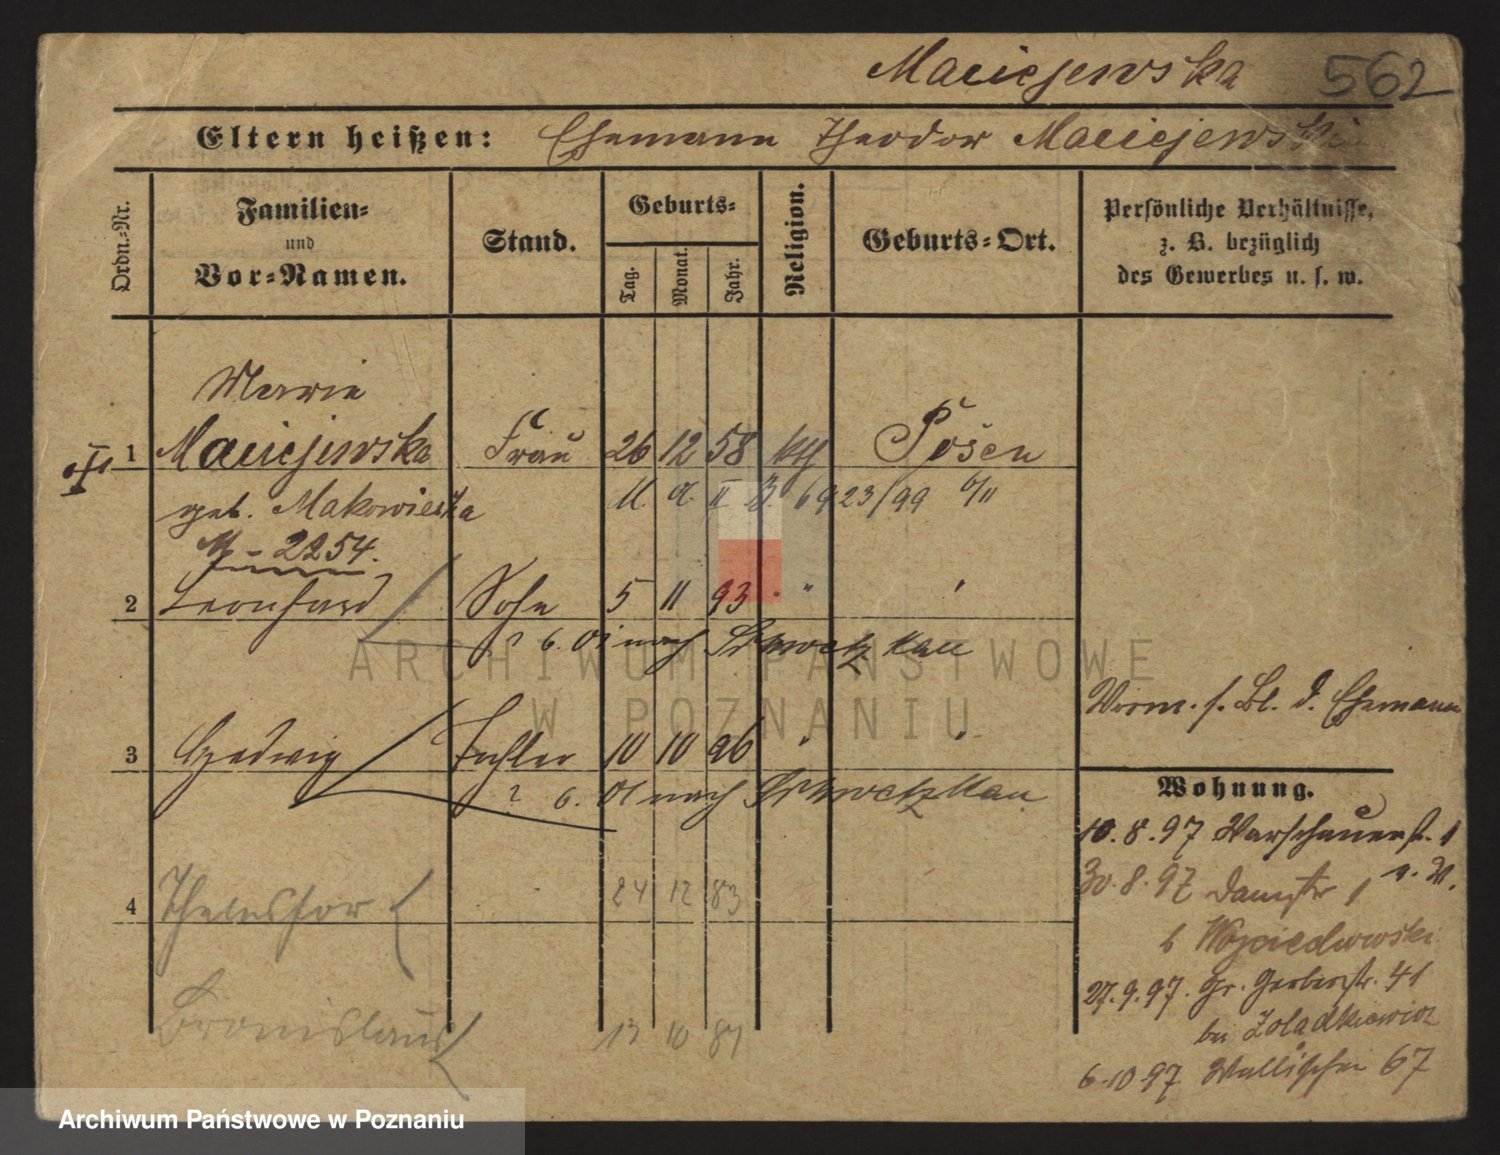 Maciejewska 562
Eltern heißen: Ehemann Theodor Maciejewski
Ordn.-Nr.
Familien-
und
Vor-Namen.
Stand.
Geburts-
Tag.
Monat.
Jahr.
Religion.
Geburts-Ort.
Persönliche Verhältnisse,
z. B. bezüglich
des Gewerbes u. s. w.
Marie
1 Maciejewska Frau 26 12 58 kth Posen
geb. Makowiecka
M - 2254.
2 Leonhard Sohn 5 11 93 " " "
? 6. 01 nach
ARCHIWUM PAŃSTWOWE
W POZNANIU
Verm. s. Bl. d. Ehemann
3 Hedwig Tochter 10 10 96 " "
? 6. 01 nach
Wohnung.
10.8.97 Warschauerstr. 1
30.8.97 Dammstr 1
b Wojciechowski
27.9.97. Gr. Gerberstr. 41
bei Zoladkiewicz
6.10.97 Wallischei 67
4 Thelesfor 24 12 83
Bronislaus 13 10 87
Archiwum Państwowe w Poznaniu